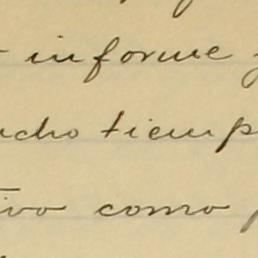 informe
ucho tiemp
ivo como